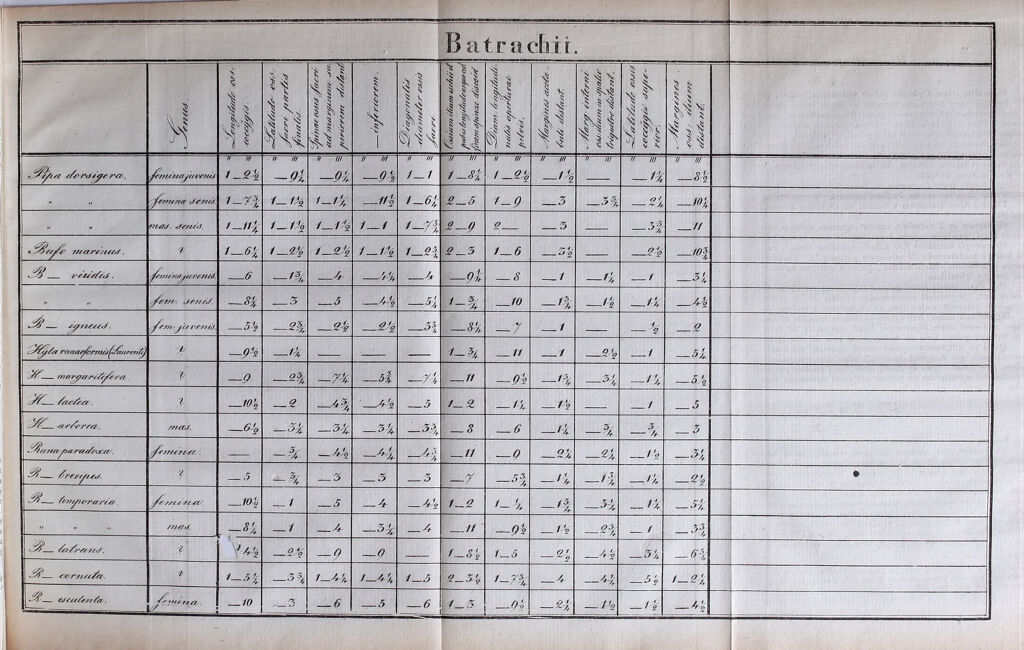 Batrachii.
Genus. Longitudo oss. coccygis. Latitudo oss. sacri partis Spinae cons. sacri ad marginum su- periorem distant —inferiorem. Diagonalis diameter ossis sacri Diam. longitudi- nalis aperturae pelvis. Margines aceta- buli distant. Marg. interni oss. ilium a spatio distant. Latitudo ossis coccygis supe- rior. Margines oss. ilium distant.
" "' " "' " "' " "' " "' " "' " "' " "' " "' " "' " "'
Pipa dorsigera. femina juvenis 1—2½ —9¼ —9¼ —9½ 1—1 1—8¼ 1—2½ —1½ — —1¼ —8½
" " femina senis 1—7¾ 1—1½ 1—1¼ —11½ 1—6¼ 2—5 1—9 —3 —3¾ —2¼ —10¼
" " mas. senis. 1—11¼ 1—1½ 1—1½ 1—1 1—7¾ 2—9 2— —3 — —3¾ —11
Bufo marinus. ? 1—6¼ 1—2½ 1—2½ 1—1½ 1—2¾ 2—3 1—6 —3½ — —2½ —10¾
B— viridis. femina juvenis —6 —1¾ —4 —4¼ —4 —9¼ —8 —1 —1¼ —1 —3¼
" " fem. senis. —8¼ —3 —5 —4½ —5¼ 1—¾ —10 —1¾ —1½ —1¼ —4½
B— igneus. fem. juvenis. —5½ —2¾ —2½ —2½ —3¾ —8¼ —7 —1 — —½ —2
Hyla ranaeformis (Laurenti) ? —9½ —1¼ — — — 1—¾ —11 —1 —2½ —1 —5¼
H— margaritifera. ? —9 —2¾ —7¼ —5¾ —7¼ —11 —9½ —1¾ —3¼ —1¼ —5½
H— lactea. ? —10½ —2 —4¾ —4½ —5 1—2 —1¼ —1½ — —1 —5
H— arborea. mas. —6½ —3¼ —3¼ —3¼ —3¾ —8 —6 —1¼ —¾ —¾ —3
Rana paradoxa. femina. — —¾ —4½ —4¼ —4¾ —11 —9 —2¼ —2¼ —1½ —3¼
R— brevipes. ? —5 —¾ —3 —3 —3 —7 —5¾ —1¼ —1¾ —1¼ —2½
R— temporaria femina. —10½ —1 —5 —4 —4½ 1—2 1—¼ —1¾ —3¼ —1¼ —5¼
" " " mas. —8¼ —1 —4 —3¼ —4 —11 —9½ —1½ —2¾ —1 —3¾
R— latrans. ? 4½ —2½ —9 —9 — 1—8½ 1—5 —2½ —4½ —3¼ —6¾
R— cornuta. ? 1—5¼ —3¾ 1—4¼ 1—4¼ 1—5 2—3½ 1—7¾ —4 —4¼ —5½ 1—2¼
R— esculenta. femina. —10 —3 —6 —5 —6 1—3 —9½ —2¼ —1½ —1½ —4½